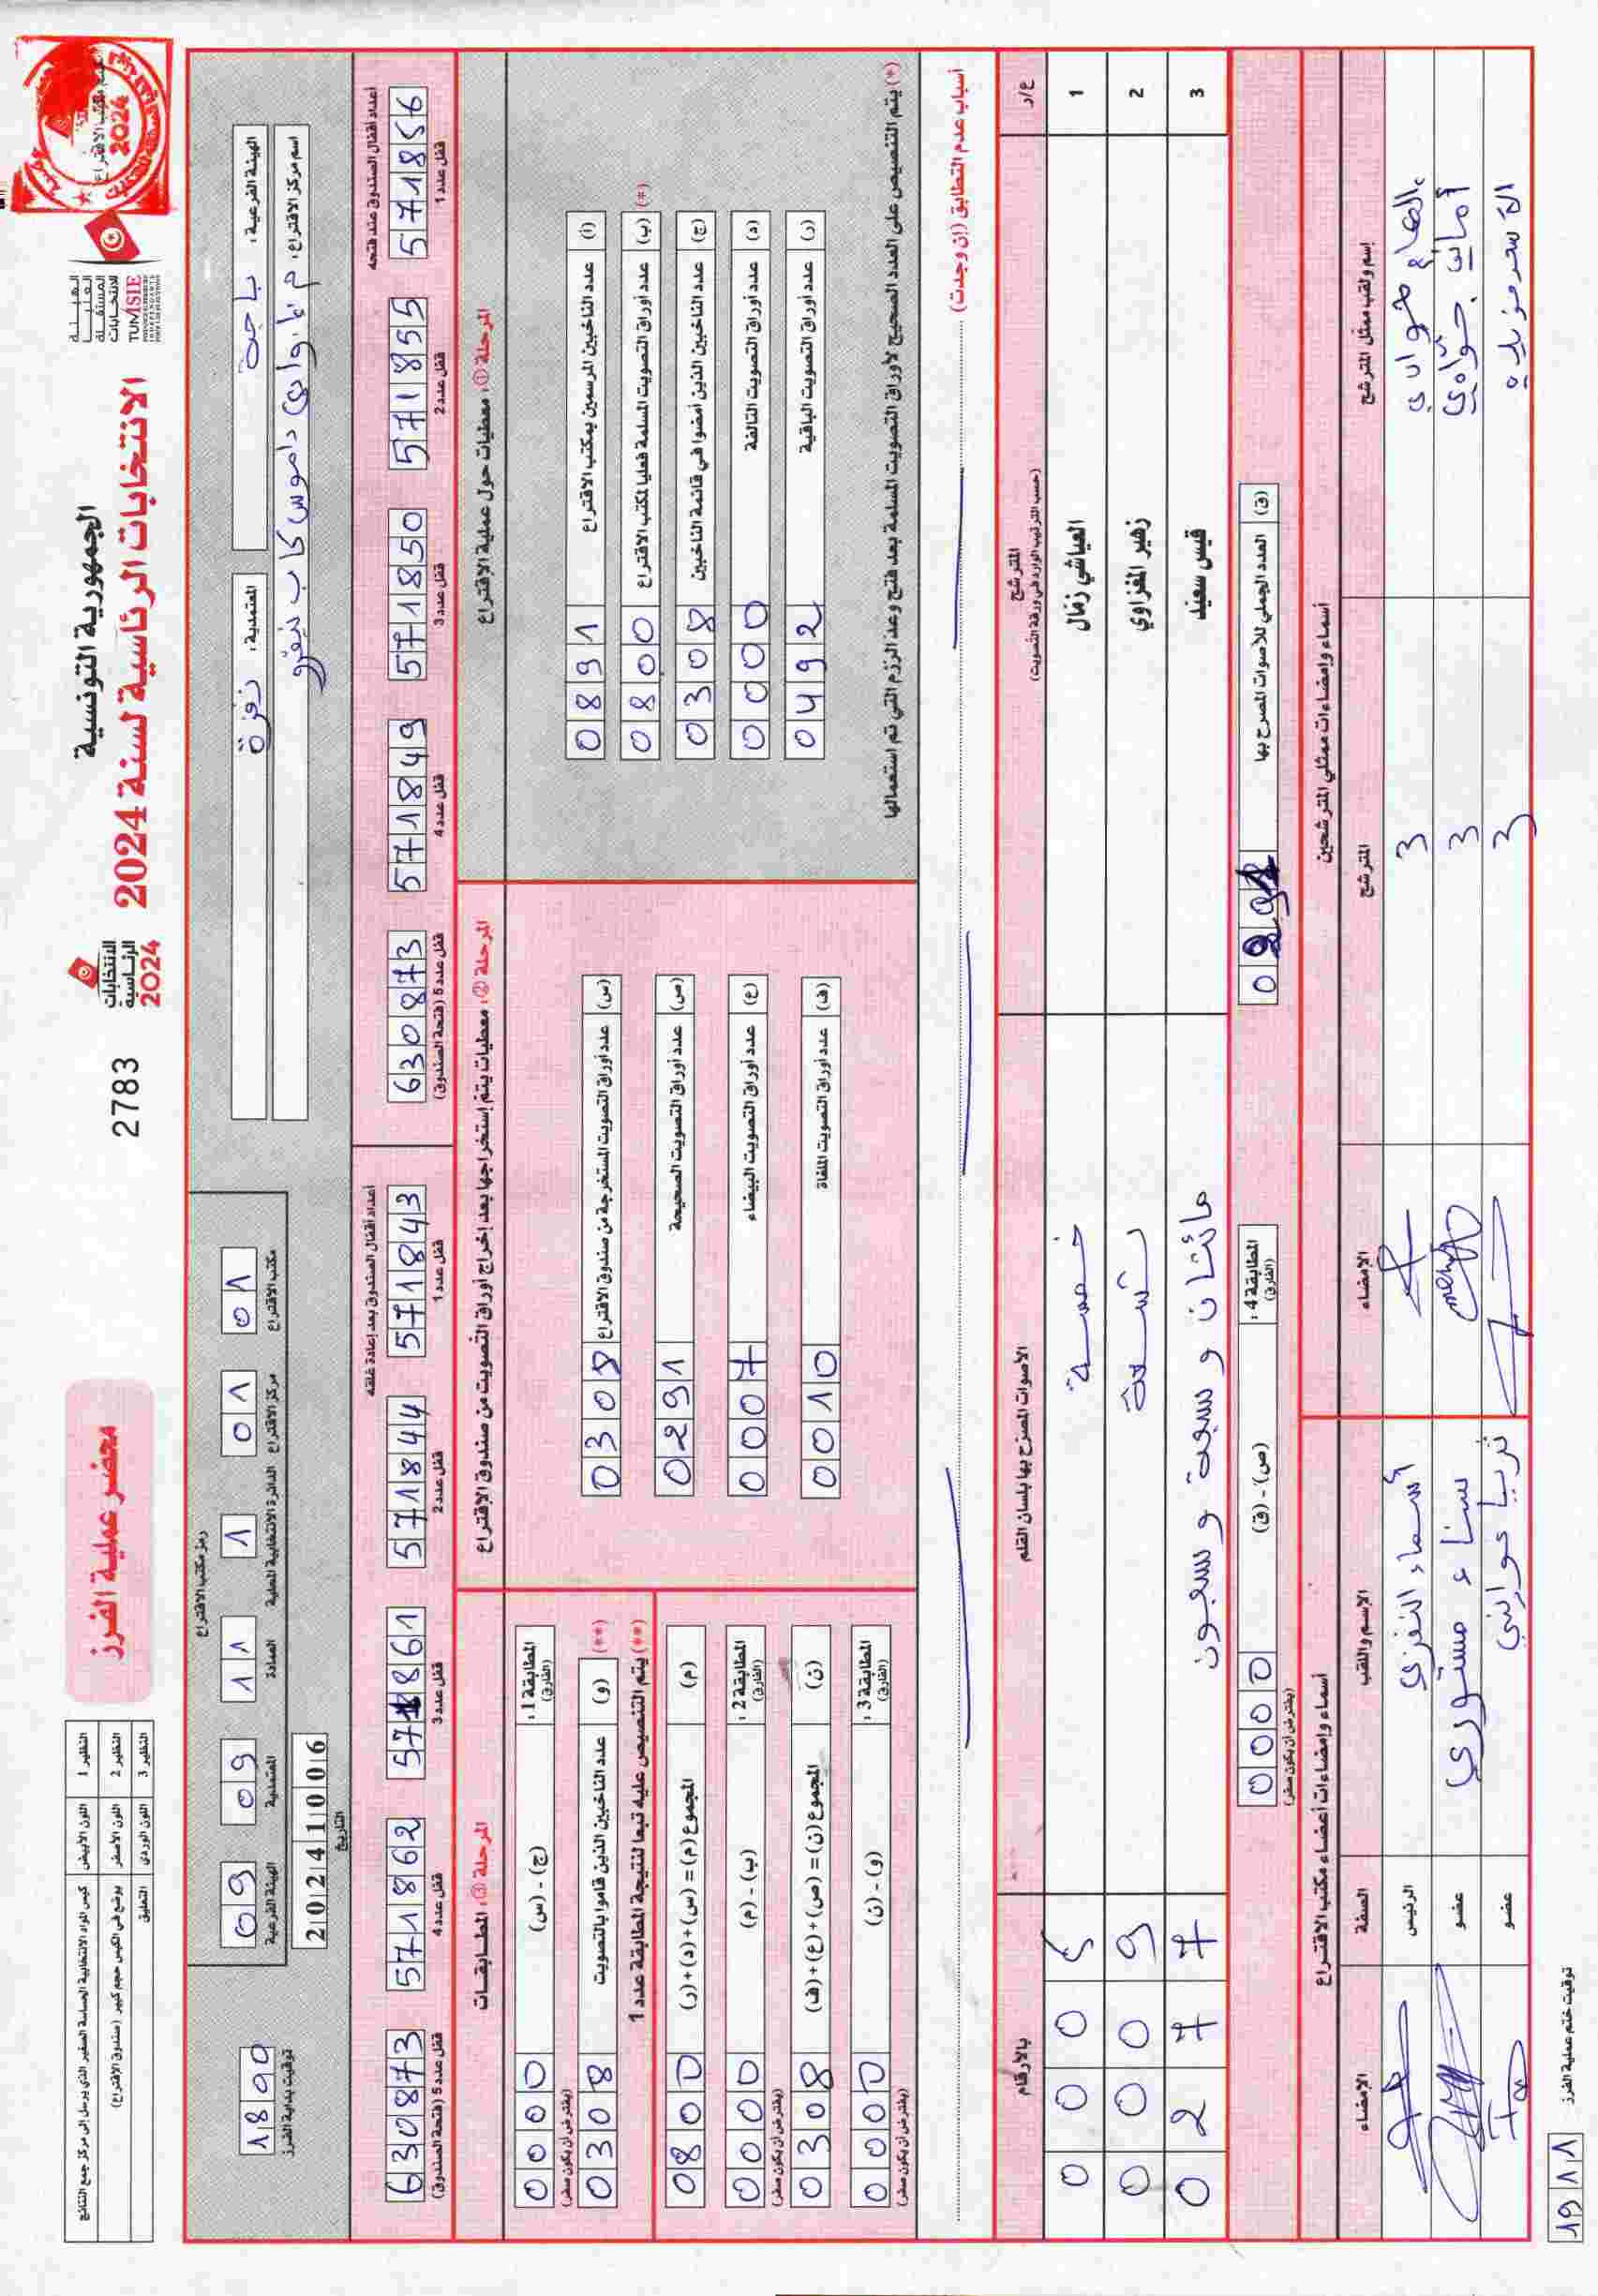 الجمهورية التونسية
الانتخابات الرئاسية لسنة 2024
الهيئة
العليا
المستقلة
للانتخابات
TUNISIE
الانتخابات
الرئاسية
2024
2783
محضر عملية الفرز
النظير 1 اللون الأبيض كيس المواد الانتخابية الحساسة الصغير الذي يرسل إلى مركز جمع النتائج
النظير 2 اللون الأصفر يوضع في الكيس حجم كبير (صندوق الاقتراع)
النظير 3 اللون الوردي التعليق
الهيئة الفرعية: باجة
المعتمدية: نفزة
اسم مركز الاقتراع:
رمز مكتب الاقتراع
مكتب الاقتراع 01
مركز الاقتراع 01
الدائرة الانتخابية المحلية 1
العمادة 11
المعتمدية 09
الهيئة الفرعية 09
التاريخ 20241006
توقيت بداية الفرز 18
أعداد أقفال الصندوق عند فتحه
571856 قفل عدد 1
571855 قفل عدد 2
571850 قفل عدد 3
571849 قفل عدد 4
630873 قفل عدد 5 (فتحة الصندوق)
أعداد أقفال الصندوق بعد إعادة غلقه
571843 قفل عدد 1
571844 قفل عدد 2
571861 قفل عدد 3
571862 قفل عدد 4
630873 قفل عدد 5 (فتحة الصندوق)
المرحلة ①: معطيات حول عملية الاقتراع
(أ) عدد الناخبين المرسمين بمكتب الاقتراع 0891
(*) (ب) عدد أوراق التصويت المسلمة فعليا لمكتب الاقتراع 0800
(ج) عدد الناخبين الذين أمضوا في قائمة الناخبين 0308
(د) عدد أوراق التصويت التالفة 0000
(ر) عدد أوراق التصويت الباقية 0492
(*) يتم التنصيص على العدد الصحيح لأوراق التصويت المسلمة بعد فتح وعد الرزم التي تم استعمالها
المرحلة ②: معطيات يتم إستخراجها بعد إخراج أوراق التصويت من صندوق الاقتراع
(س) عدد أوراق التصويت المستخرجة من صندوق الاقتراع 0308
(ص) عدد أوراق التصويت الصحيحة 0291
(ع) عدد أوراق التصويت البيضاء 0007
(ف) عدد أوراق التصويت الملغاة 0010
المرحلة ③: المطابقات
المطابقة 1: (الفارق) (ج) - (س) 0000 (يفترض أن يكون صفر)
(**) (و) عدد الناخبين الذين قاموا بالتصويت 0308
(**) يتم التنصيص عليه تبعا لنتيجة المطابقة عدد 1
(م) المجموع (م) = (س)+(د)+(ر) 0800
المطابقة 2: (الفارق) (ب) - (م) 0000 (يفترض أن يكون صفر)
(ن) المجموع (ن) = (ص)+(ع)+(ف) 0308
المطابقة 3: (الفارق) (و) - (ن) 0000 (يفترض أن يكون صفر)
أسباب عدم التطابق (إن وجدت):
ع/ر المترشح (حسب الترتيب الوارد في ورقة التصويت) الأصوات المصرح بها بلسان القلم بالأرقام
1 العياشي زمّال خمسة 0005
2 زهير المغزاوي تسعة 0009
3 قيس سعيّد مائتان و سبعة و سبعون 0277
(ق) العدد الجملي للأصوات المصرح بها 0291
المطابقة 4: (الفارق) (ص) - (ق) 0000 (يفترض أن يكون صفر)
أسماء وإمضاءات ممثلي المترشحين
إسم ولقب ممثل المترشح المترشح الإمضاء
3
أماني 3
3
أسماء وإمضاءات أعضاء مكتب الاقتراع
الإسم واللقب الصفة الإمضاء
أسماء النفزي الرئيس
سناء عضو
ثريا عضو
توقيت ختم عملية الفرز 1911